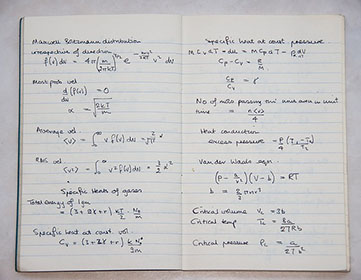 Maxwell Boltzmann distribution
irrespective of direction
f(v) dv = 4π (m/2πkT)^3/2 e^-mv²/2kT v² dv
Most prob. vel
d/dv (f(v)) = 0
α = √2kT/m
Average vel
<v> = ∫₀^∞ v f(v) dv =
RMS vel
<v²> = ∫₀^∞ v² f(v) dv = 3/2 α²
Specific heats of gases
Total energy of 1 gm
= (3+2γ+r) kT/2 · N₀/m
Specific heat at const. vol
Cv = (3+2γ+r) k N₀/2m
Specific heat at const pressure
M Cv dT = du = M Cp dT - p dV
Cp - Cv = R/M
Cp/Cv = γ
No of mols passing unit area in unit
time = n<v>/4
Heat conduction
excess pressure =
Van der Waals eqn
(P - a/v²)(V - b) = RT
b = 2/3 πnσ³
Critical volume Vc = 3b
Critical temp Tc = 8a/27Rb
Critical pressure Pc = a/27b²